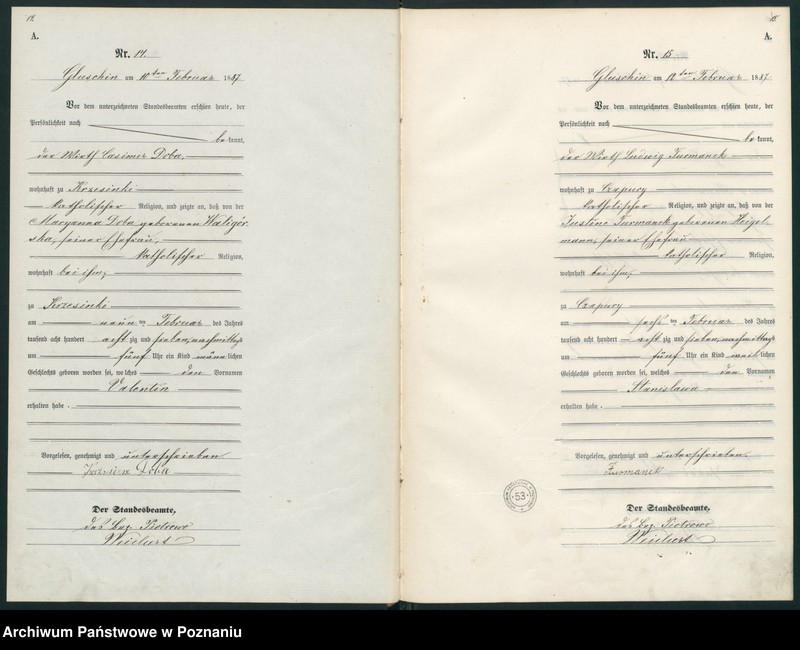 14.
A.
Nr. 14.
Gluschin am 10ten Februar 1887
Vor dem unterzeichneten Standesbeamten erschien heute, der
Persönlichkeit nach
bekannt,
der Wirth Casimir Doba,
wohnhaft zu Krzesinki
katholischer Religion, und zeigte an, daß von der
Maryanna Doba geborenen Waligór
ska, seiner Ehefrau,
katholischer Religion,
wohnhaft bei ihm,
zu Krzesinki
am neun ten Februar des Jahres
tausend acht hundert acht zig und sieben, nachmittags
um fünf Uhr ein Kind männlichen
Geschlechts geboren worden sei, welches den Vornamen
Valentin
erhalten habe.
Vorgelesen, genehmigt und unterschrieben
Doba
Der Standesbeamte,
15.
A.
Nr. 15
Gluschin am 12ten Februar 1887.
Vor dem unterzeichneten Standesbeamten erschien heute, der
Persönlichkeit nach
bekannt,
der Wirth Ludwig Furmanek
wohnhaft zu Czapury
katholischer Religion, und zeigte an, daß von der
Justine Furmanek geborenen Heigel
mann, seiner Ehefrau
katholischer Religion,
wohnhaft bei ihm,
zu Czapury
am sechs ten Februar des Jahres
tausend acht hundert acht zig und sieben, nachmittags
um fünf Uhr ein Kind weiblichen
Geschlechts geboren worden sei, welches den Vornamen
Stanislawa
erhalten habe.
Vorgelesen, genehmigt und unterschrieben
Furmanek
53
Der Standesbeamte,
Archiwum Państwowe w Poznaniu